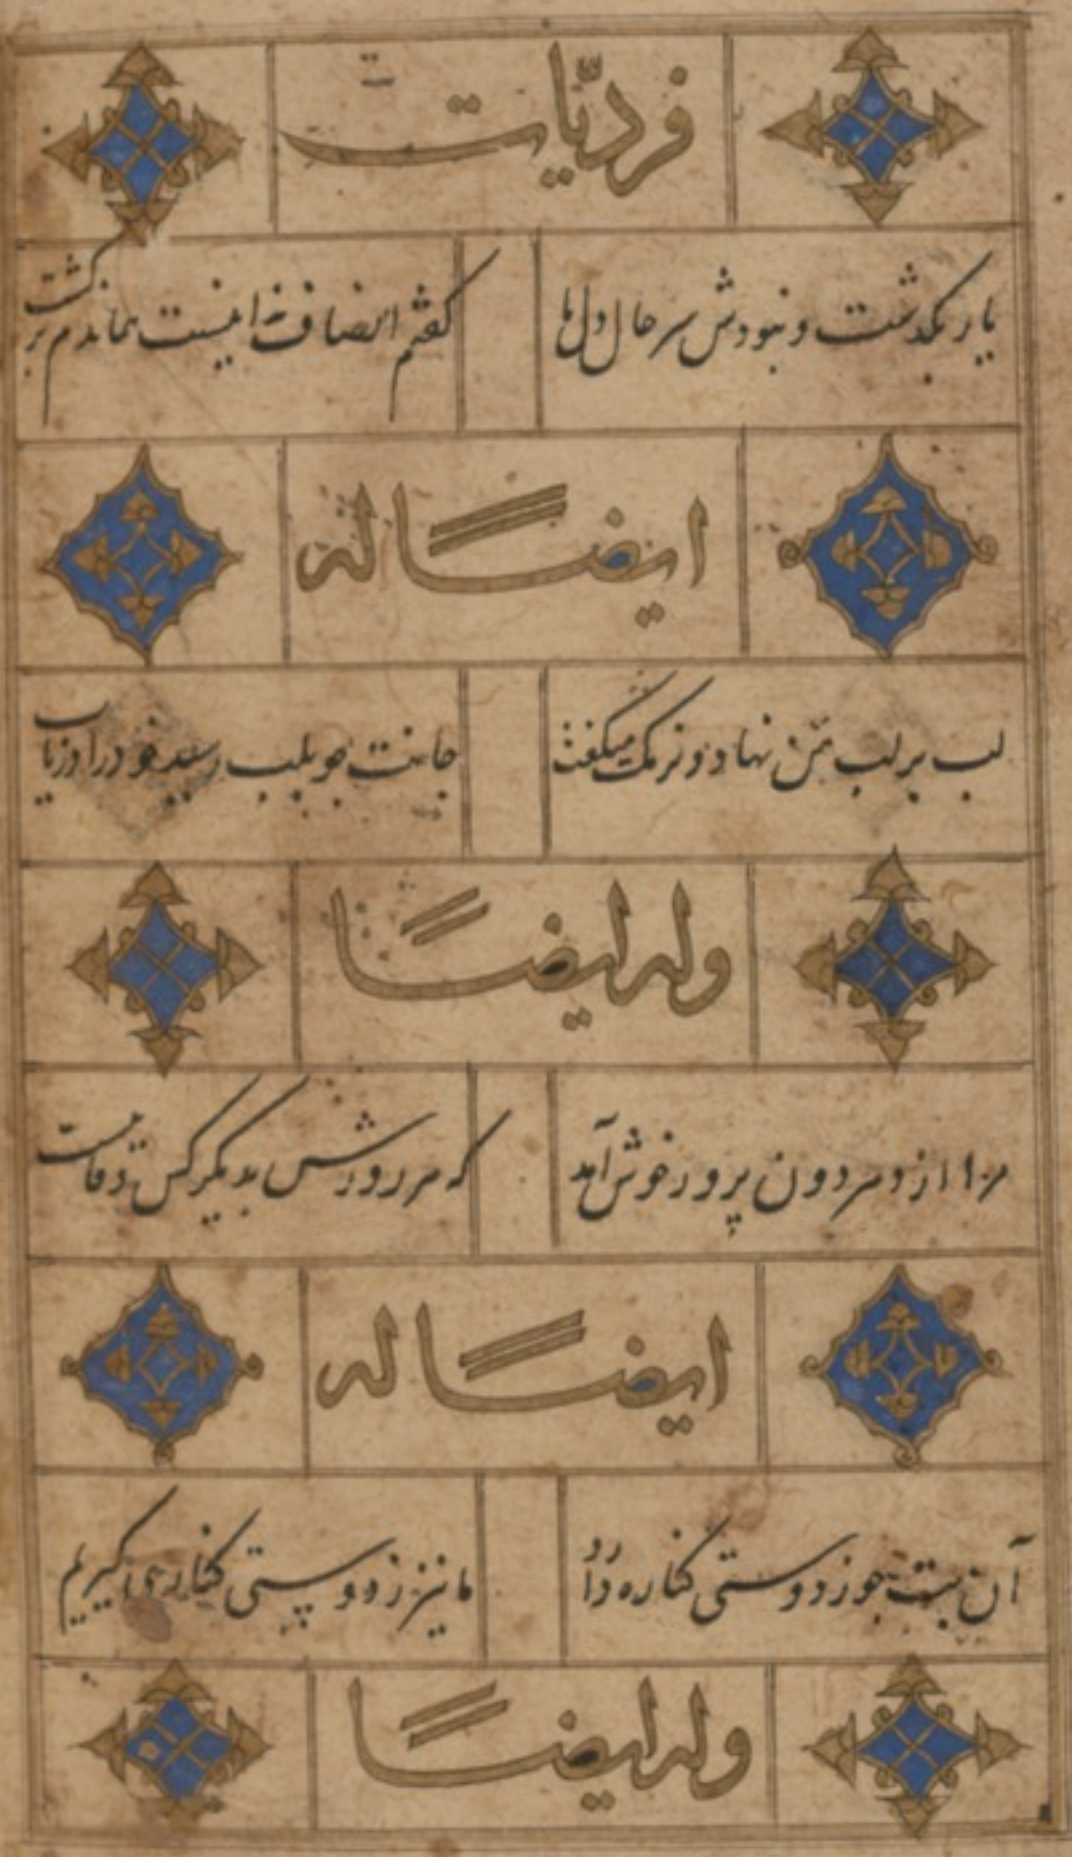 فردیّات
یار بگذشت و نبودش سر حال دل ما
گفتم انصاف نه اینست بماندم برگشت
ایضاً له
لب بر لب من نهاد و نرمک میگفت
جانت چو بلب رسید خود را دریاب
وله ایضاً
مرا از دهر دون پرور خوش آمد
که هر روزش بدیگر کس وفاست
ایضاً له
آن بت چو ز دوستی کناره دارد
ما نیز ز دوستی کناره گیریم
وله ایضاً